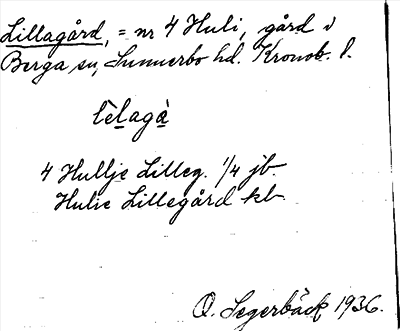 Lillagård, = nr 4 Huli, gård i
Berga sn, Sunnerbo hd. Kronob. l.
lèlagà
4 Hullje Lilleg. 1/4 jb.
Hulie Lillegård kb
O. Segerbäck 1936.